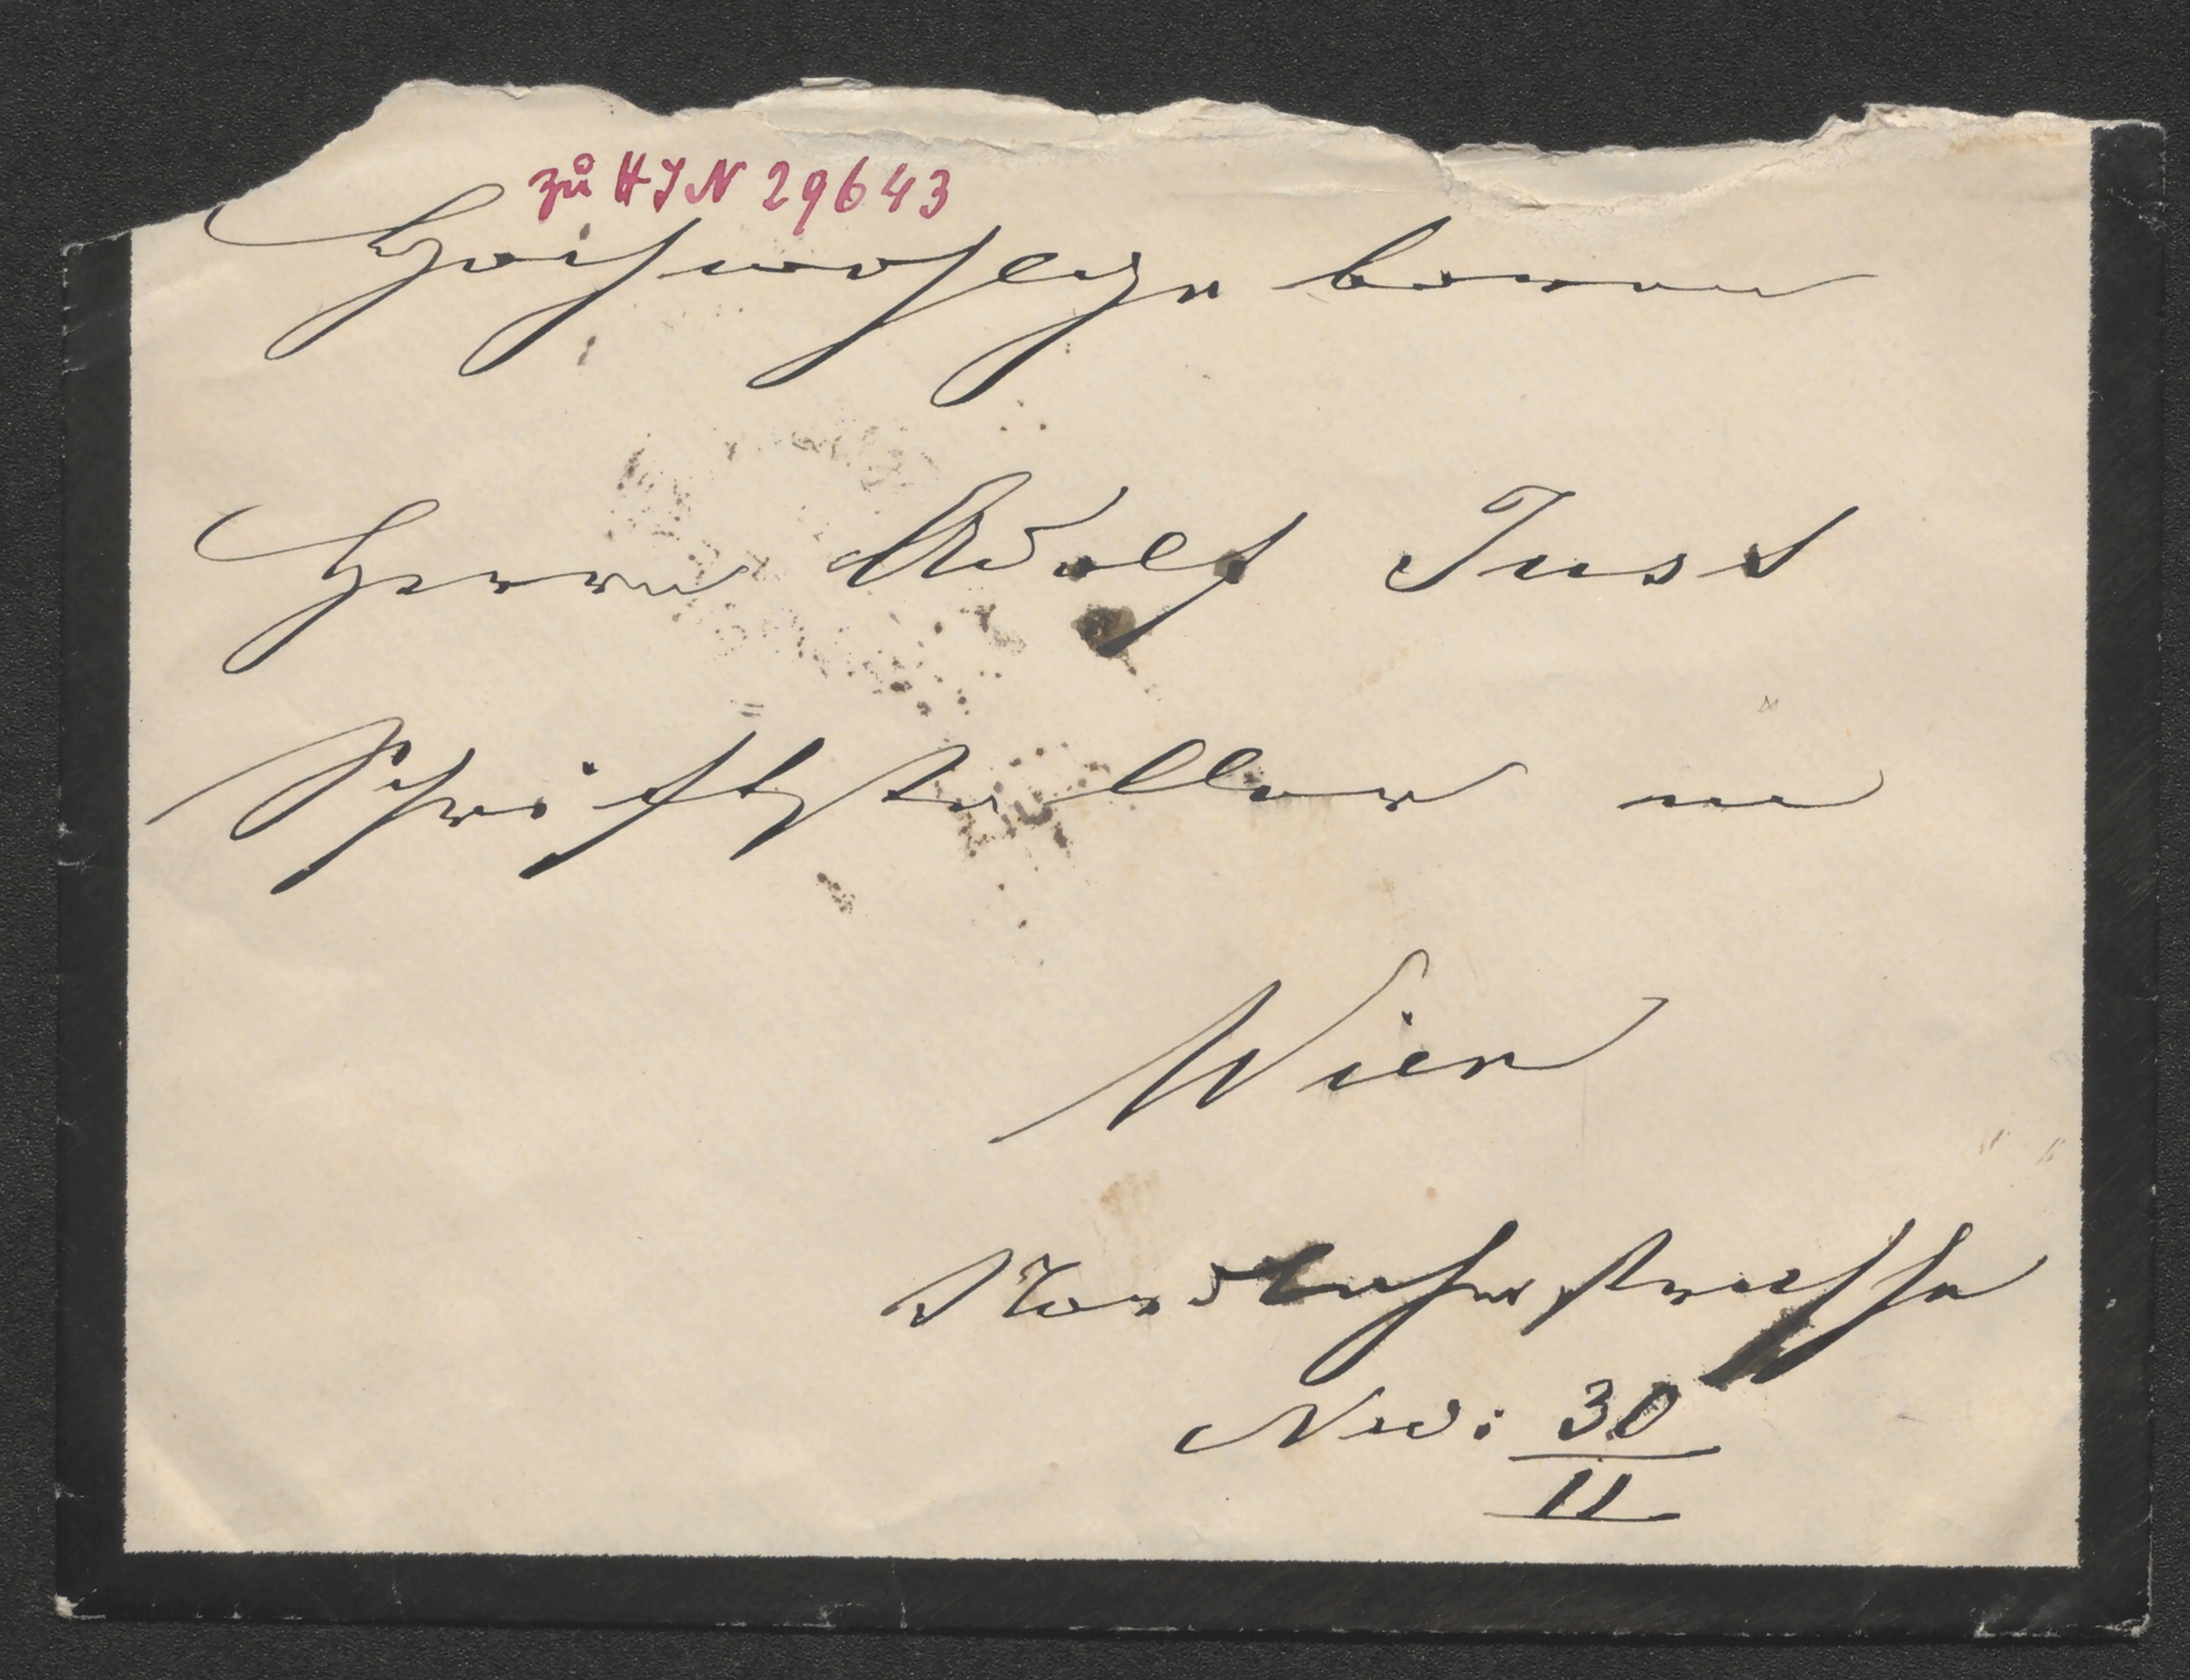 zu HJN 29643
Hochwohlgeboren
Herrn Adolf Just
Schriftsteller in
Wien
Nordbahnstrasse
Nro: 30
II